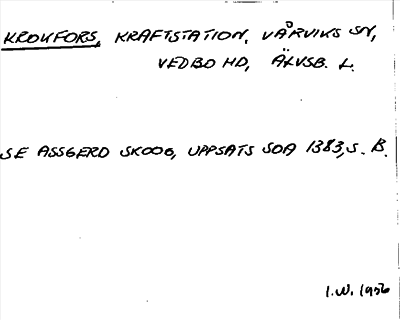 KROKFORS, KRAFTSTATION, VÅRVIKS SN,
VEDBO HD, ÄLVSB. L.
SE ASSGERD SKOOG, UPPSATS SOA 1383, S. B.
I.W. 1956